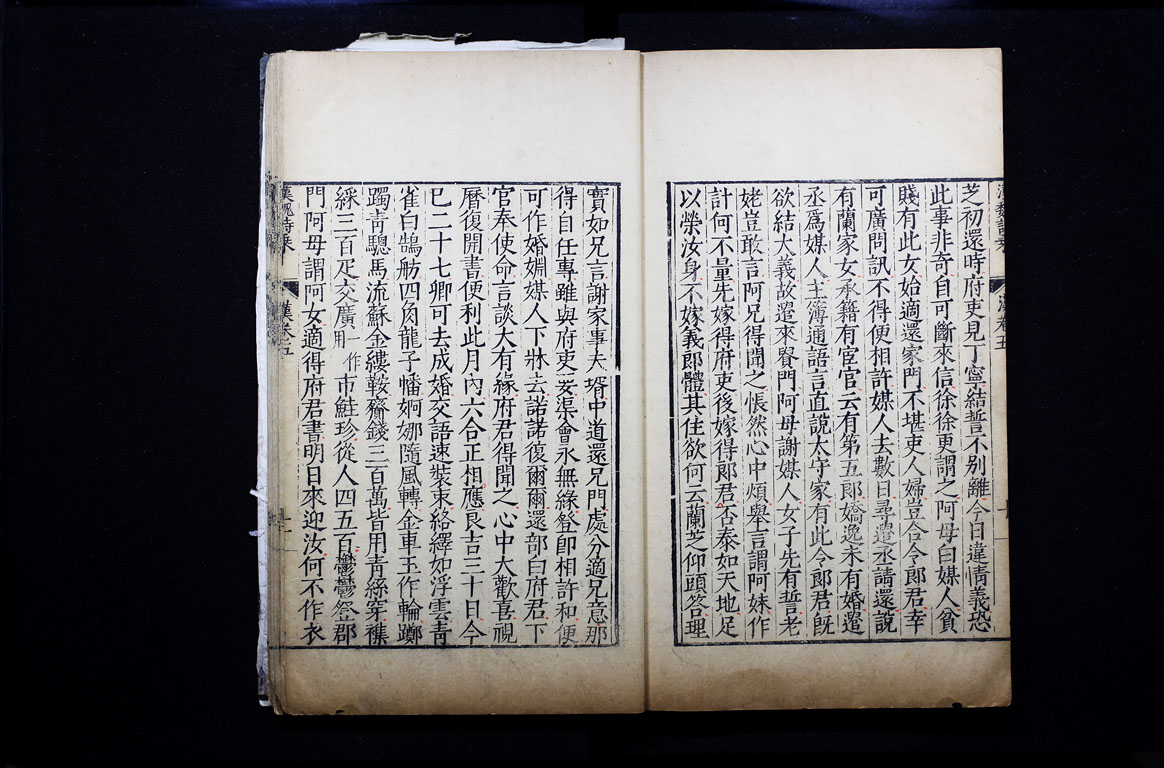 漢魏詩乘 漢卷五
芝初還時府吏見丁寧結誓不別離今日違情義恐
此事非奇自可斷來信徐徐更謂之阿母白媒人貧
賤有此女始適還家門不堪吏人婦豈合令郎君幸
可廣問訊不得便相許媒人去數日尋遣丞請還說
有蘭家女承籍有宦官云有第五郎嬌逸未有婚遣
丞爲媒人主簿通語言直說太守家有此令郎君既
欲結大義故遣來貴門阿母謝媒人女子先有誓老
姥豈敢言阿兄得聞之悵然心中煩舉言謂阿妹作
計何不量先嫁得府吏後嫁得郎君否泰如天地足
以榮汝身不嫁義郎體其住欲何云蘭芝仰頭答理
實如兄言謝家事夫壻中道還兄門處分適兄意那
得自任專雖與府吏要渠會永無緣登卽相許和便
可作婚姻媒人下牀去諾諾復爾爾還部白府君下
官奉使命言談大有緣府君得聞之心中大歡喜視
曆復開書便利此月內六合正相應良吉三十日今
已二十七卿可去成婚交語速裝束絡繹如浮雲青
雀白鵠舫四角龍子幡婀娜隨風轉金車玉作輪躑
躅青驄馬流蘇金縷鞍齎錢三百萬皆用青絲穿雜
綵三百疋交廣一作用市鮭珍從人四五百鬱鬱登郡
門阿母謂阿女適得府君書明日來迎汝何不作衣
漢魏詩乘 漢卷五